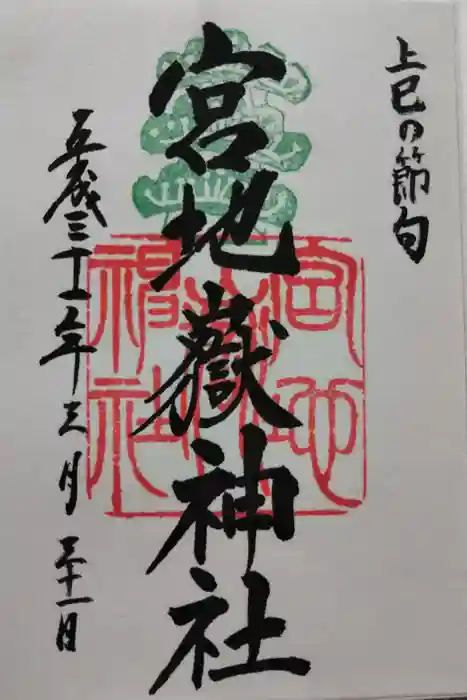 上巳の節句
宮地嶽神社
平成三十一年三月三十一日
宮地嶽神社